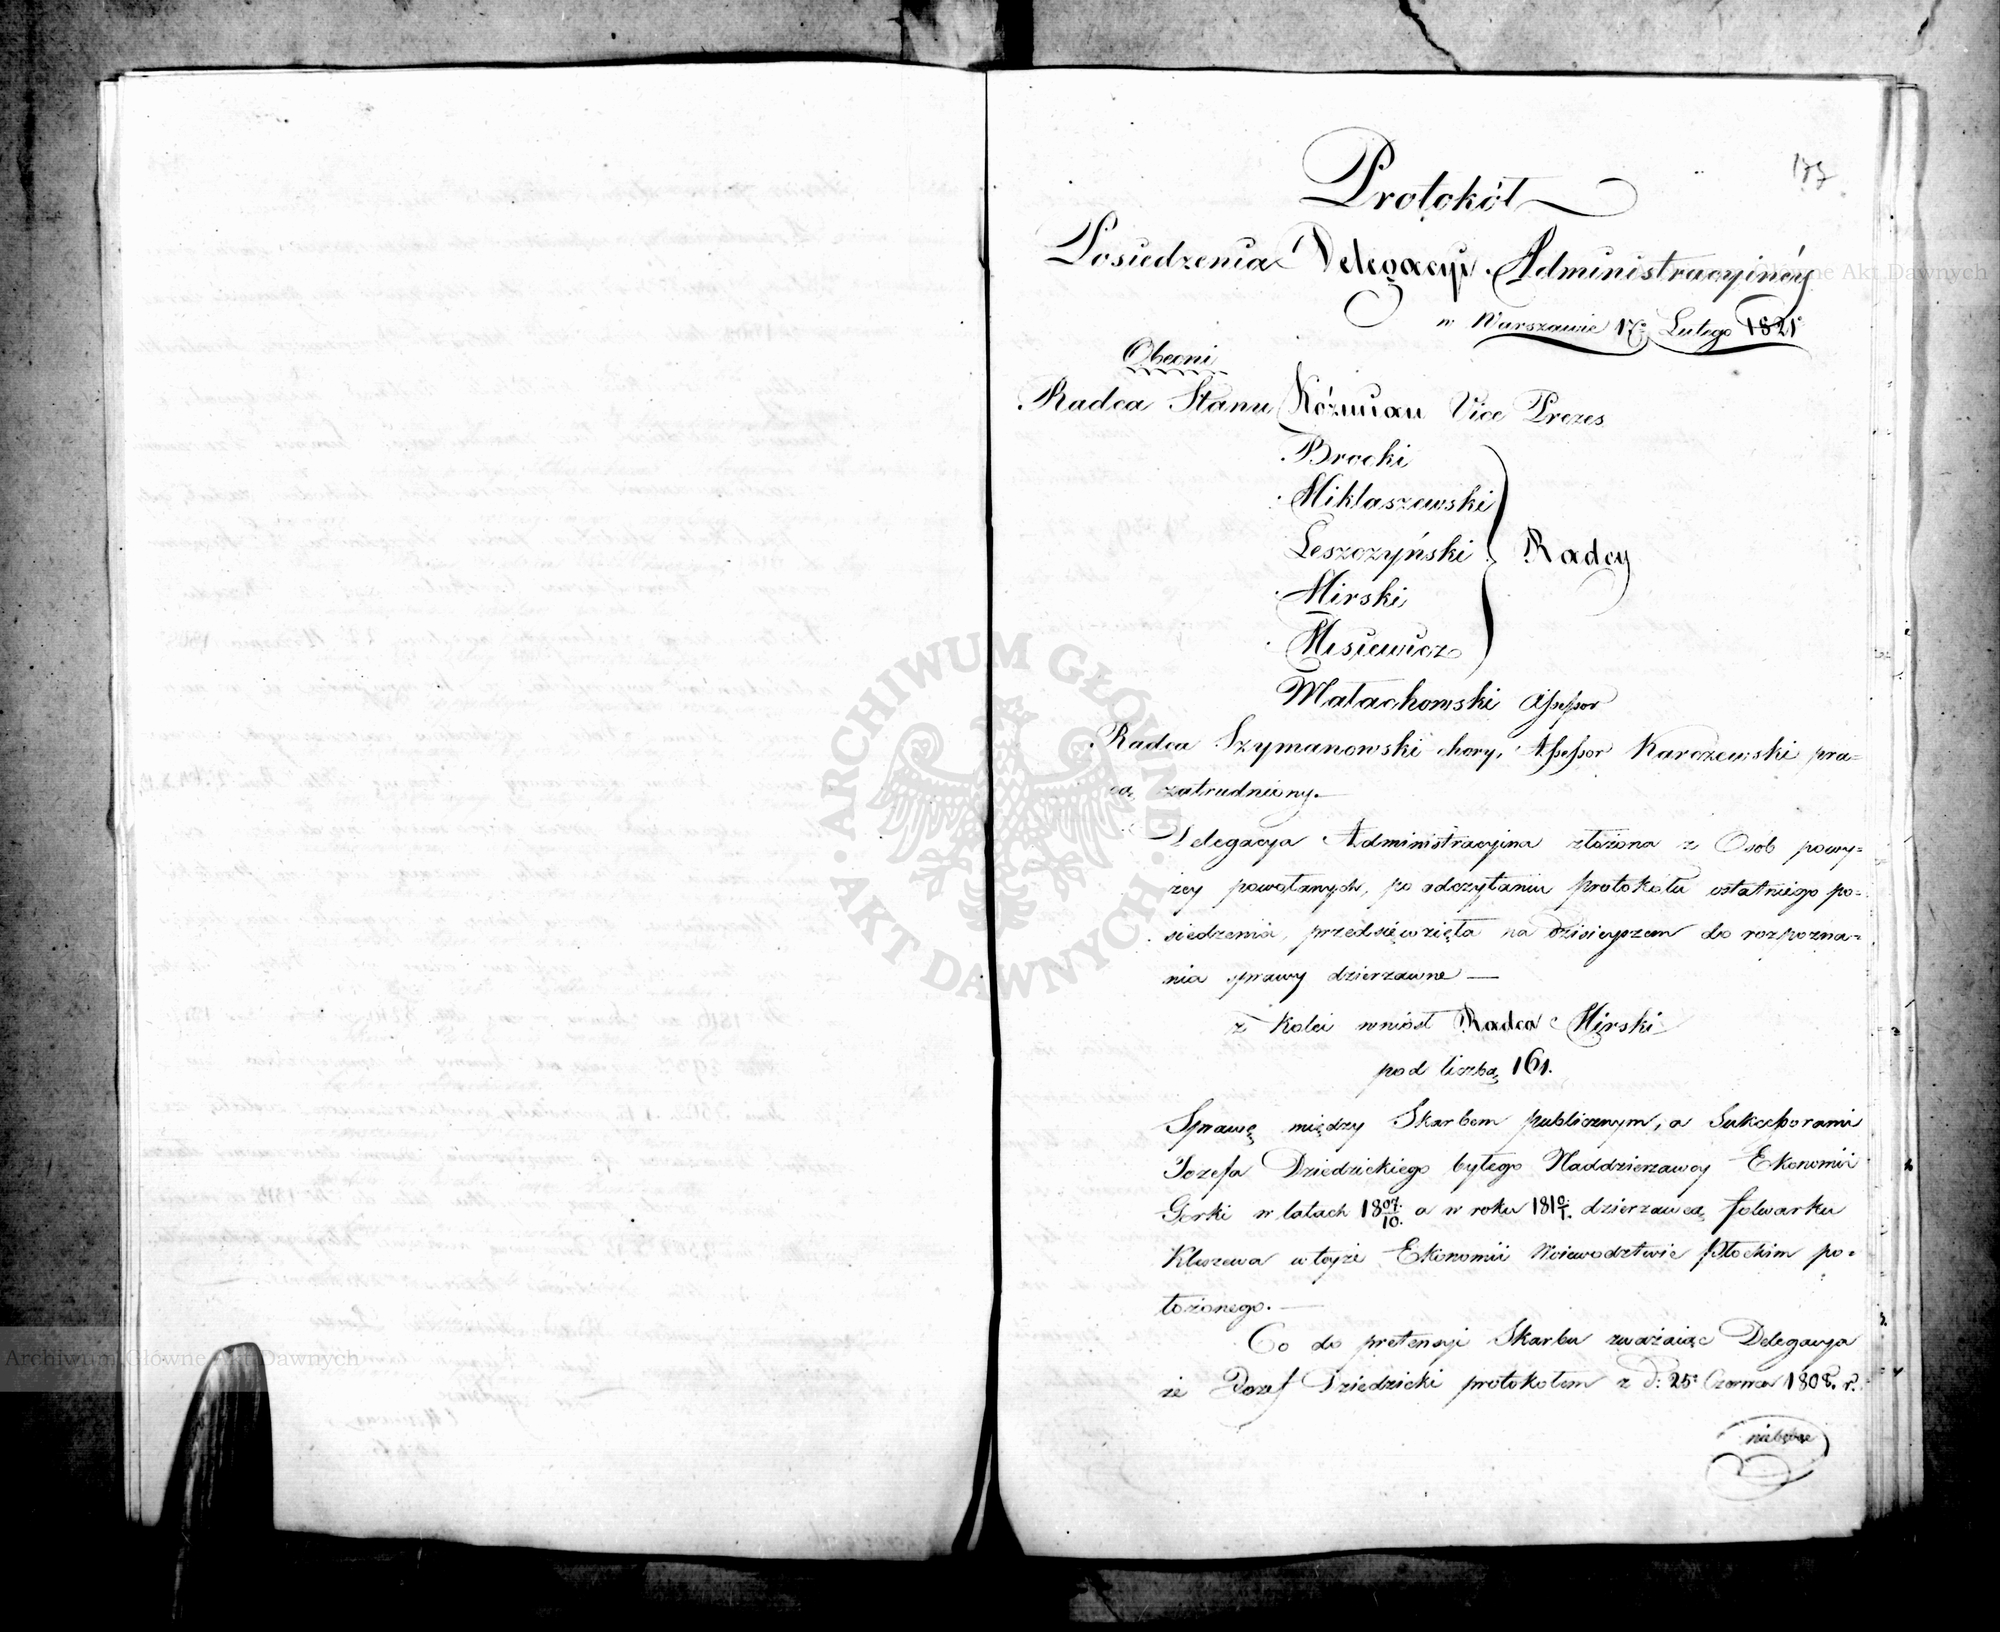 177
Protokół
Posiedzenia Delegacyi Administracyinéy
w Warszawie 17. Lutego 1821
Obecni
Radca Stanu Koźmian Vice Prezes
Brocki
Miklaszewski
Leszczyński
Mirski
Misiewicz
Radcy
Małachowski Assessor
Radca Szymanowski chory, Assessor Karczewski pra=
cą zatrudniony.—
Delegacya Administracyina złożona z Osób powy=
żey powołanych, po odczytaniu protokołu ostatniego po=
siedzenia, przedsięwzięła na dzisieyszem do rozpozna=
nia sprawy dzierzawne —
z kolei wniósł Radca Mirski
pod liczbą 161.
Sprawę między Skarbem publicznym, a Sukcessorami
Jozefa Dziedzickiego byłego Naddzierzawcy Ekonomii
Gorki w latach 1807/10. a w roku 1810/1. dzierzawcą folwarku
Kluszewa w teyże Ekonomii Woiewodztwie Płockim po=
łożonego.—
Co do pretensyi Skarbu zważaiąc Delegacya
że Jozef Dziedzicki protokołem z d: 25. Czerwca 1808. r.
Archiwum Główne Akt Dawnych
ARCHIWUM GŁÓWNE AKT DAWNYCH
Główne Akt Dawnych